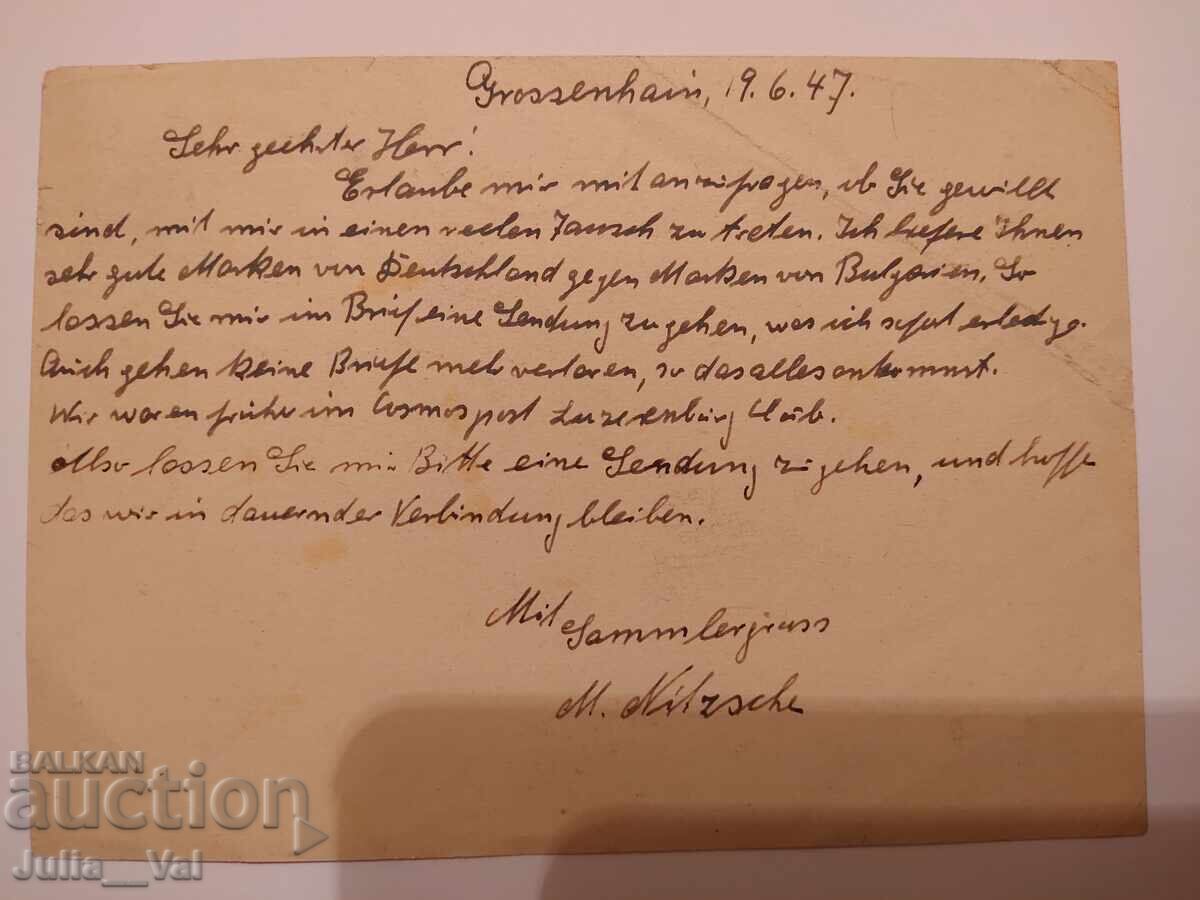 Grossenhain, 19.6.47.
Sehr geehrter Herr!
Erlaube mir mit anzufragen, ob Sie gewillt
sind, mit mir in einen reelen Tausch zu treten. Ich liefere Ihnen
sehr gute Marken von Deutschland gegen Marken von Bulgarien. So
lassen Sie mir im Brief eine Sendung zugehen, was ich sofort erledige.
Auch gehen keine Briefe mehr verloren, so das alles ankommt.
Wir waren früher im Cosmospost Luxemburg Club.
Also lassen Sie mir Bitte eine Sendung zugehen, und hoffe
das wir in dauernder Verbindung bleiben.
Mit
Sammlergruss
M. Nitzsche
BALKAN
auction
Julia__Val